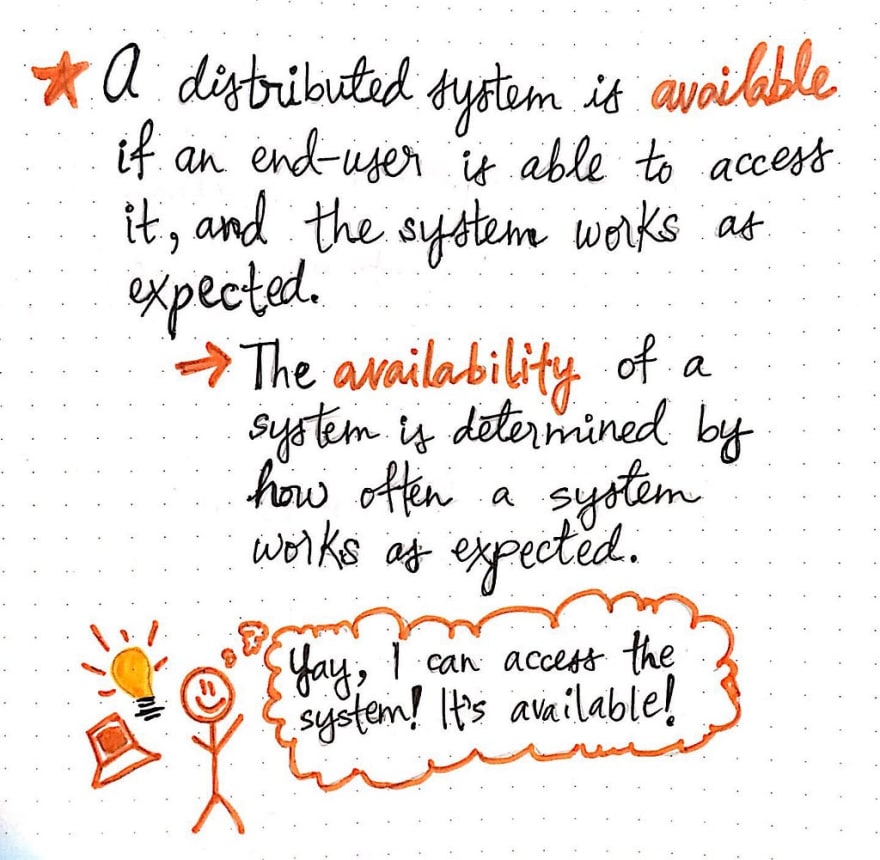 A distributed system is available
if an end-user is able to access
it, and the system works as
expected.
The availability of a
system is determined by
how often a system
works as expected.
Yay, I can access the
system! It's available!